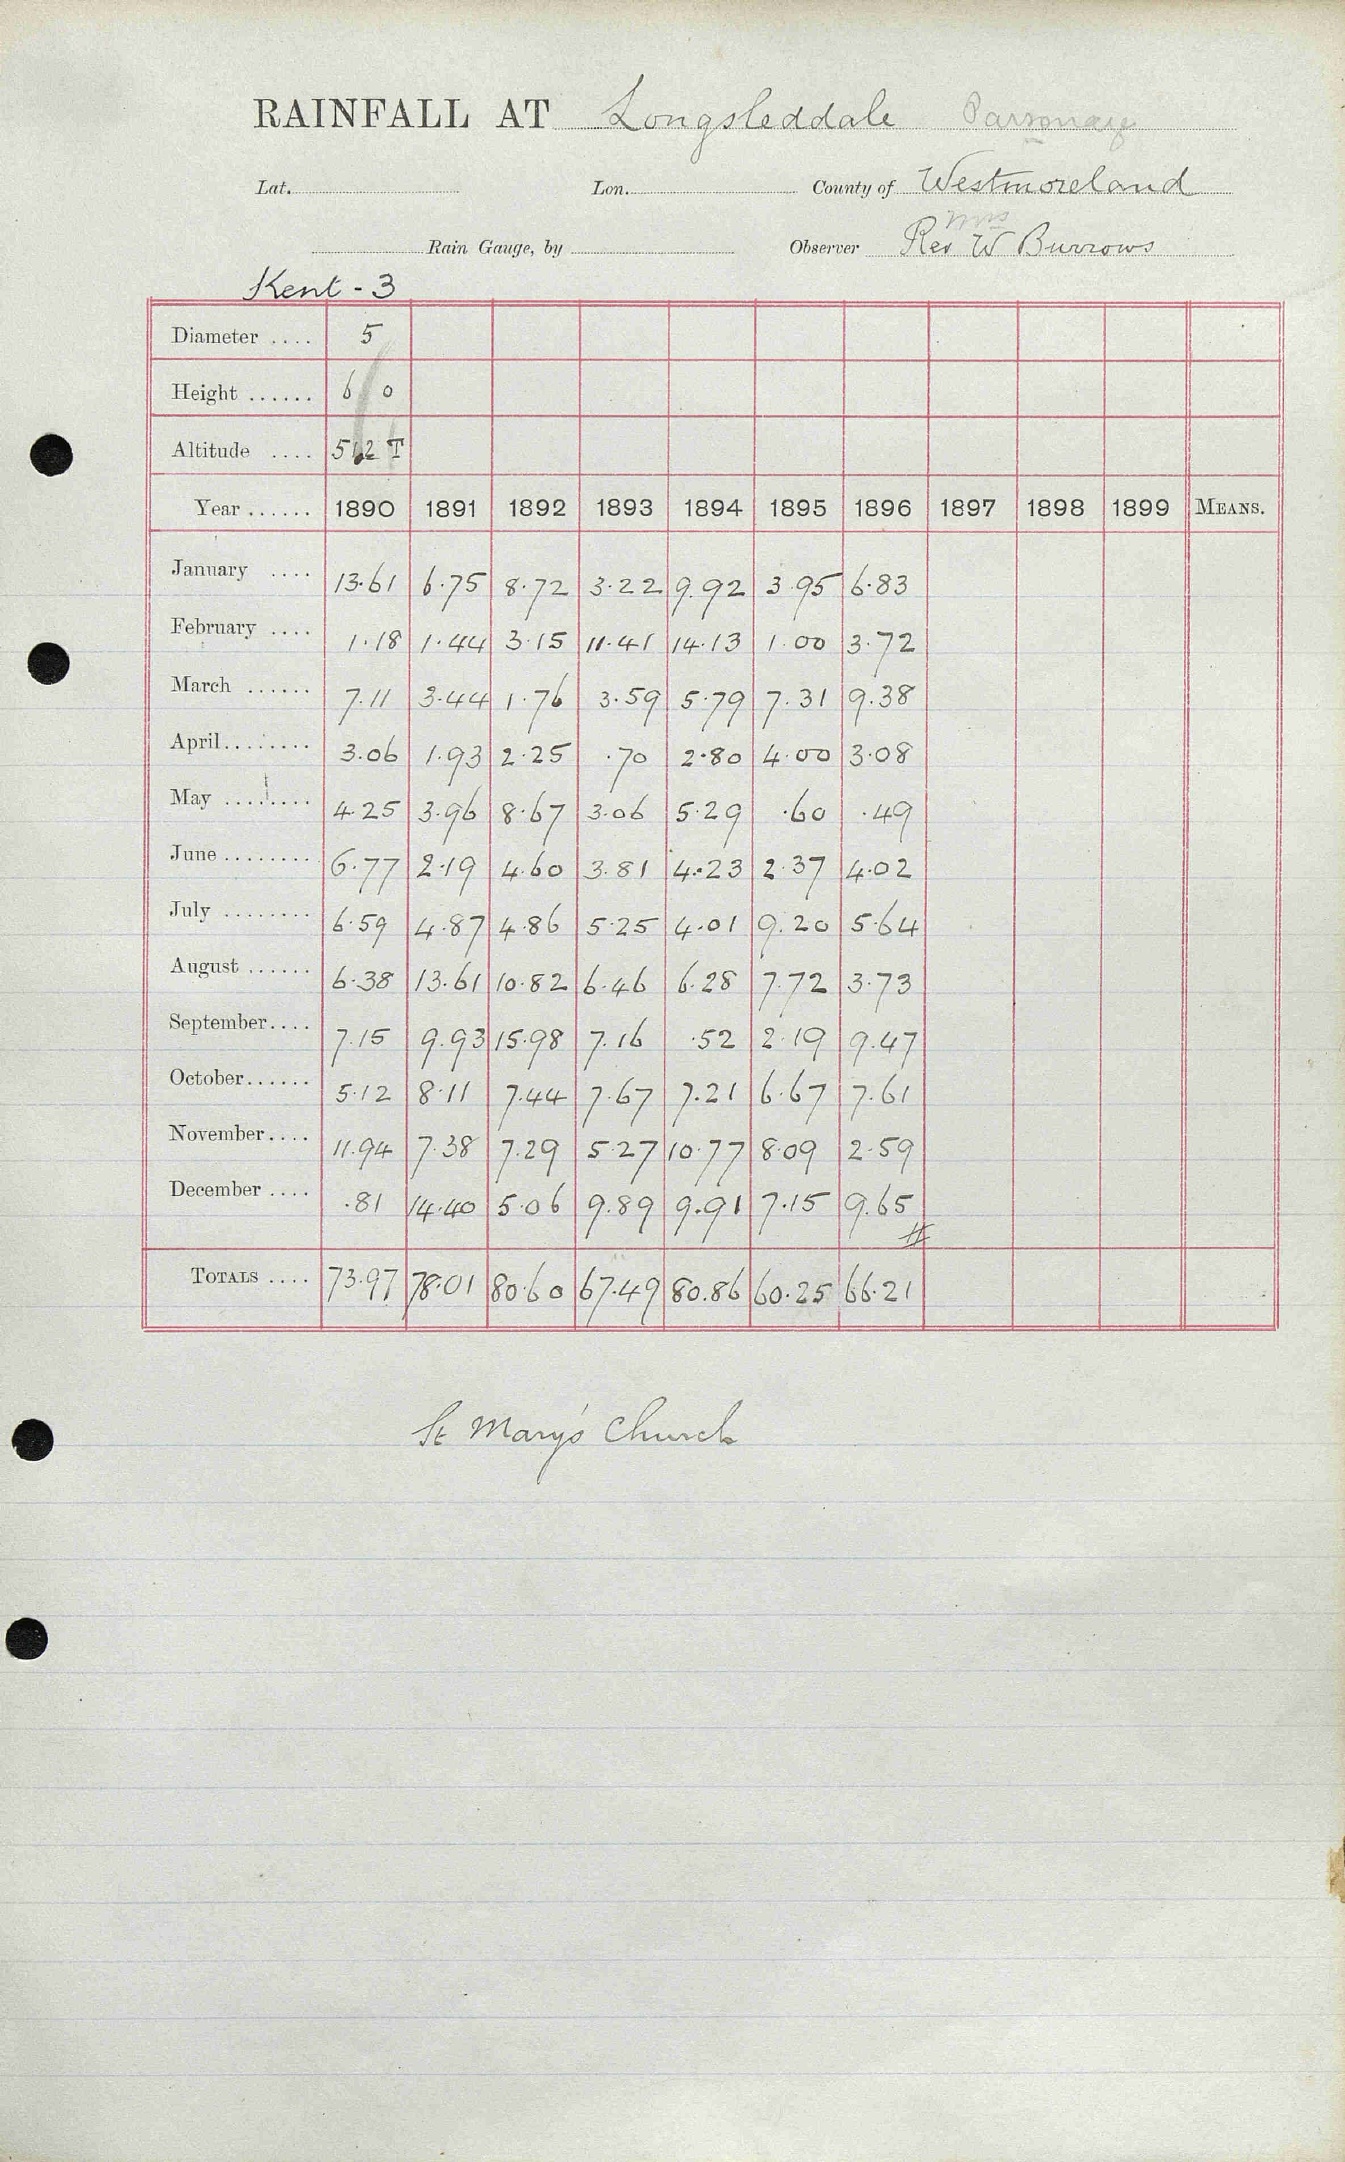 RAINFALL AT Longsleddale Parsonage
Lat. Lon. County of Westmoreland
Mrs
Rain Gauge, by Observer Rev W Burrows
Kent - 3
Diameter .... 5
Height ...... 6 0
Altitude .... 512 T
Year ...... 1890 1891 1892 1893 1894 1895 1896 1897 1898 1899 MEANS.
January .... 13.61 6.75 8.72 3.22 9.92 3.95 6.83
February .... 1.18 1.44 3.15 11.41 14.13 1.00 3.72
March ...... 7.11 3.44 1.76 3.59 5.79 7.31 9.38
April........ 3.06 1.93 2.25 .70 2.80 4.00 3.08
May ........ 4.25 3.96 8.67 3.06 5.29 .60 .49
June ........ 6.77 2.19 4.60 3.81 4.23 2.37 4.02
July ........ 6.59 4.87 4.86 5.25 4.01 9.20 5.64
August ...... 6.38 13.61 10.82 6.46 6.28 7.72 3.73
September.... 7.15 9.93 15.98 7.16 .52 2.19 9.47
October...... 5.12 8.11 7.44 7.67 7.21 6.67 7.61
November.... 11.94 7.38 7.29 5.27 10.77 8.09 2.59
December .... .81 14.40 5.06 9.89 9.91 7.15 9.65
TOTALS .... 73.97 78.01 80.60 67.49 80.86 60.25 66.21
St Mary's Church